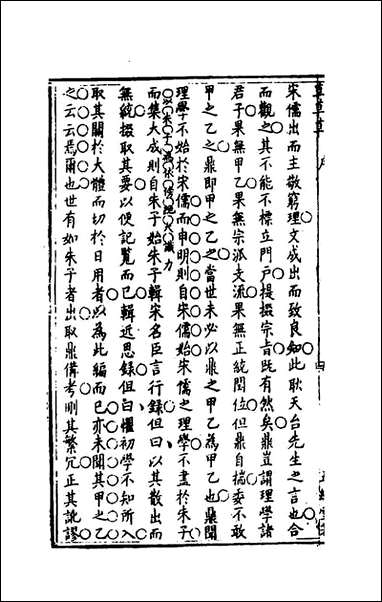 宋儒出而主敬窮理文成出而致良知此耿天台先生之言也合
而觀之其不能不標立門戶提掇宗旨既有然矣鼎豈謂理學諸
君子果無甲乙果無宗派支流果無正統閏位但鼎自揣委不敢
甲之乙之鼎即甲之乙之當世未必以鼎之甲乙為甲乙也鼎聞
理學不始於宋儒而申明則自宋儒始宋儒之理學不盡於朱子
而集大成則自朱子始朱子輯宋名臣言行錄但曰以其散出而
無統掇取其要以便記覽而已輯近思錄但曰懼初學不知所入
取其關於大體而切於日用者以為此編而已亦未聞其甲之乙
之云云焉爾也世有如朱子者出取鼎備考刪其繁冗正其訛謬